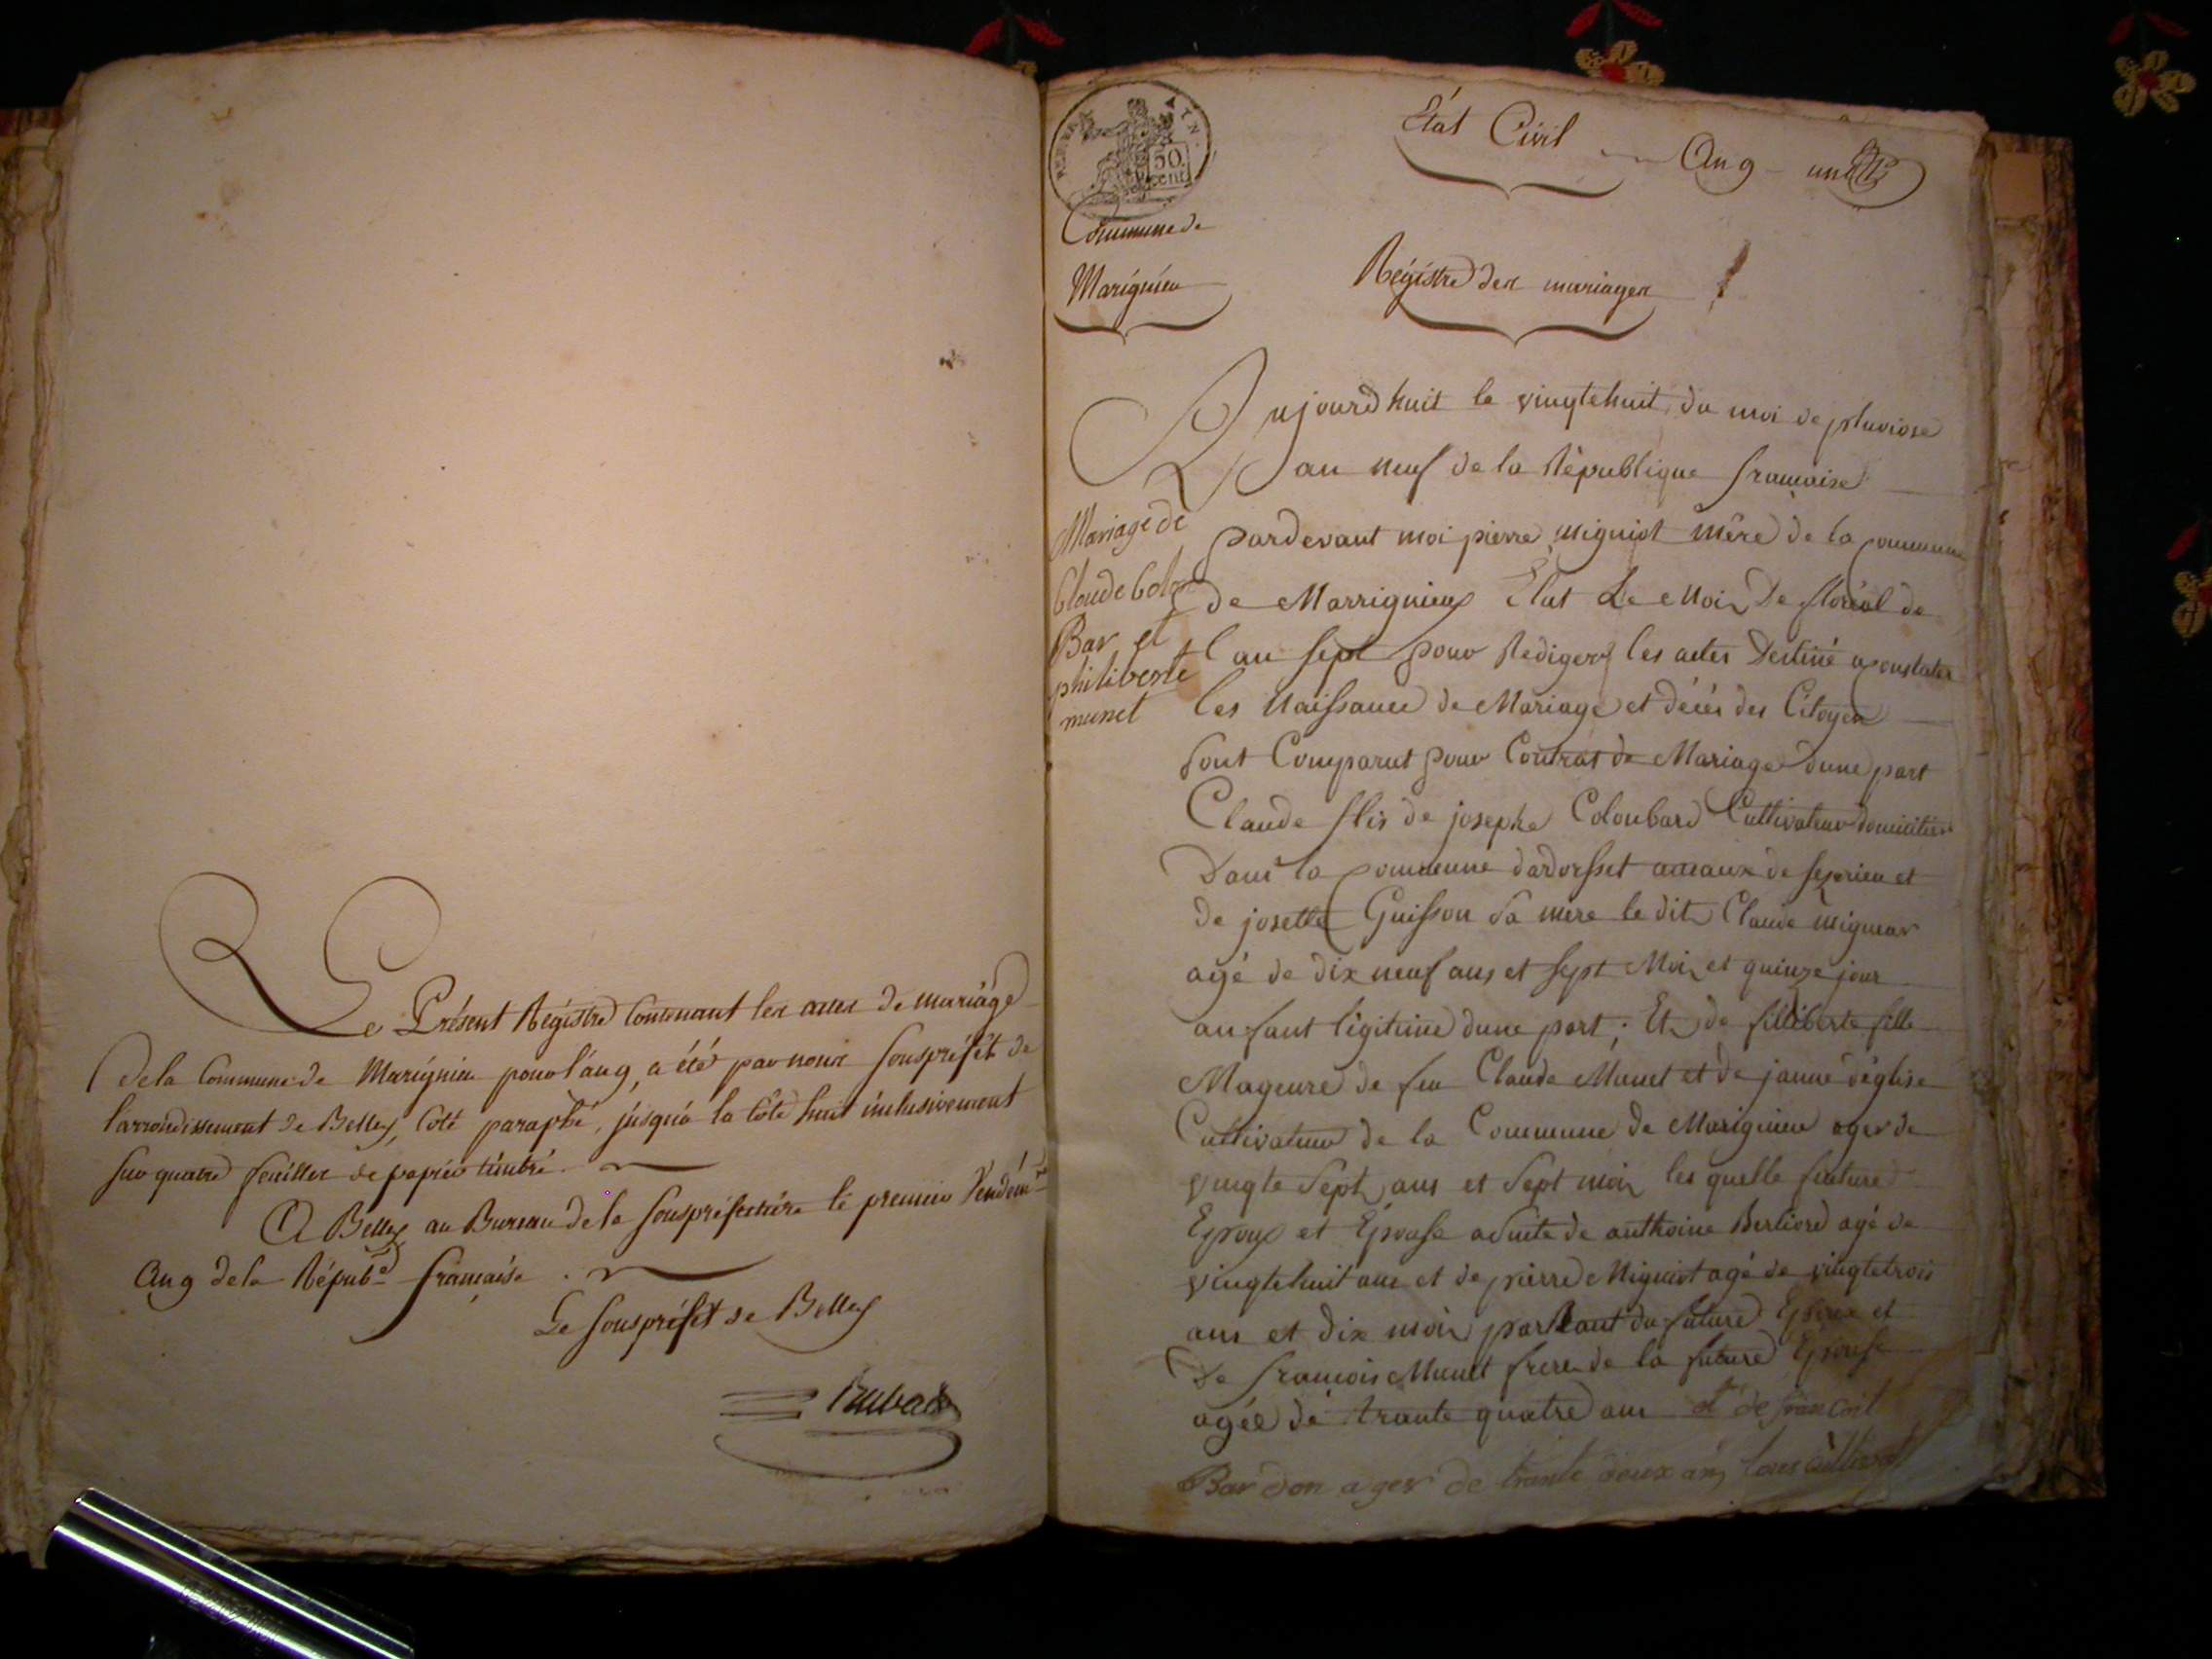 Le Présent Régistre Contenant les actes de mariage
de la Commune de Marignieu pour l'an 9, a été par nous souspréfet de
l'arrondissement de Belley, Coté paraphé, jusqu'à la Cote huit inclusivement
sur quatre feuilles de papier timbré.
A Belley au Bureau de la souspréfecture le premier Vendém.re
an 9 de la Répub.e française.
Le souspréfet de Belley
AYN.
50.
Cent
État Civil
An 9 - un
Commune de
Marignieu
Régistre des mariages
Aujourdhuit le vingtehuit du moi de pluviose
an neuf de la République francaise
Mariage de
Claude Colon
Bar et
philiberte
munet
pardevant moi pierre migniot mère de la commune
de Marrignieux Elut Le Moi De floréal de
l an sept pour Rediger les actes Destiné a constater
les Naissance de Mariage et décés des Citoyen
sont Comparut pour Contrat de Mariage dune part
Claude fils de josephe Coloubard Cultivateur domicilier
Dans la commune dardosset amaux de
de josette Guisson sa mere le dit Claude migneur
agé de dix neuf ans et sept Moi et quinze jour
anfant légitime dune part ; Et de filliberte fille
Mageure de feu Claude Munet et de janne déglise
Cultivateur de la Commune de Marignieu ager de
vingte Sept ans et Sept moi les quelle future
Epoux et Epouse asuite de anthoine Berliord agé de
vingtehuit ans et de pierre Migniot agé de vingtetrois
ans et dix moi parkant du future Epoux et
de francois Munet frere de la future Epouse
agée de trante quatre ans et de francoit
Bardon ager de trante doux ans tous